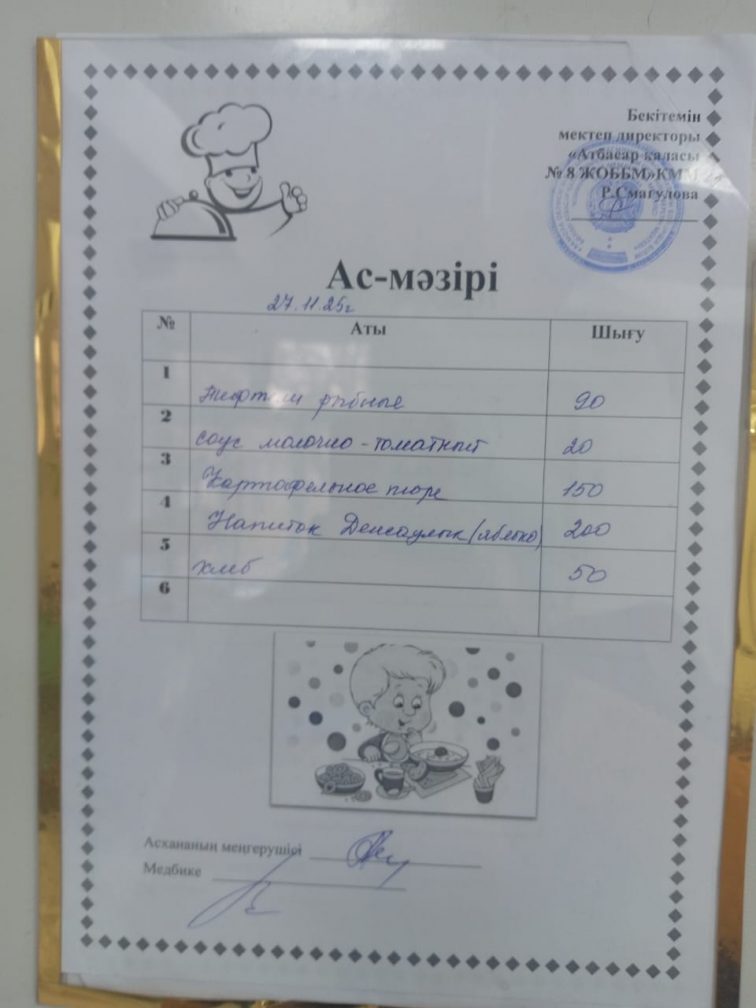 Бекітемін
мектеп директоры
«Атбасар қаласы
№ 8 ЖОББМ»КММ
Р.Смагулова
Ас-мәзірі
27.11.25г
№ Аты Шығу
1 Тефтели рыбные 90
2 соус молочно-томатный 20
3 Картофельное пюре 150
4 Напиток Денсаулык (яблоко) 200
5 хлеб 50
6
Асхананың меңгерушісі
Медбике